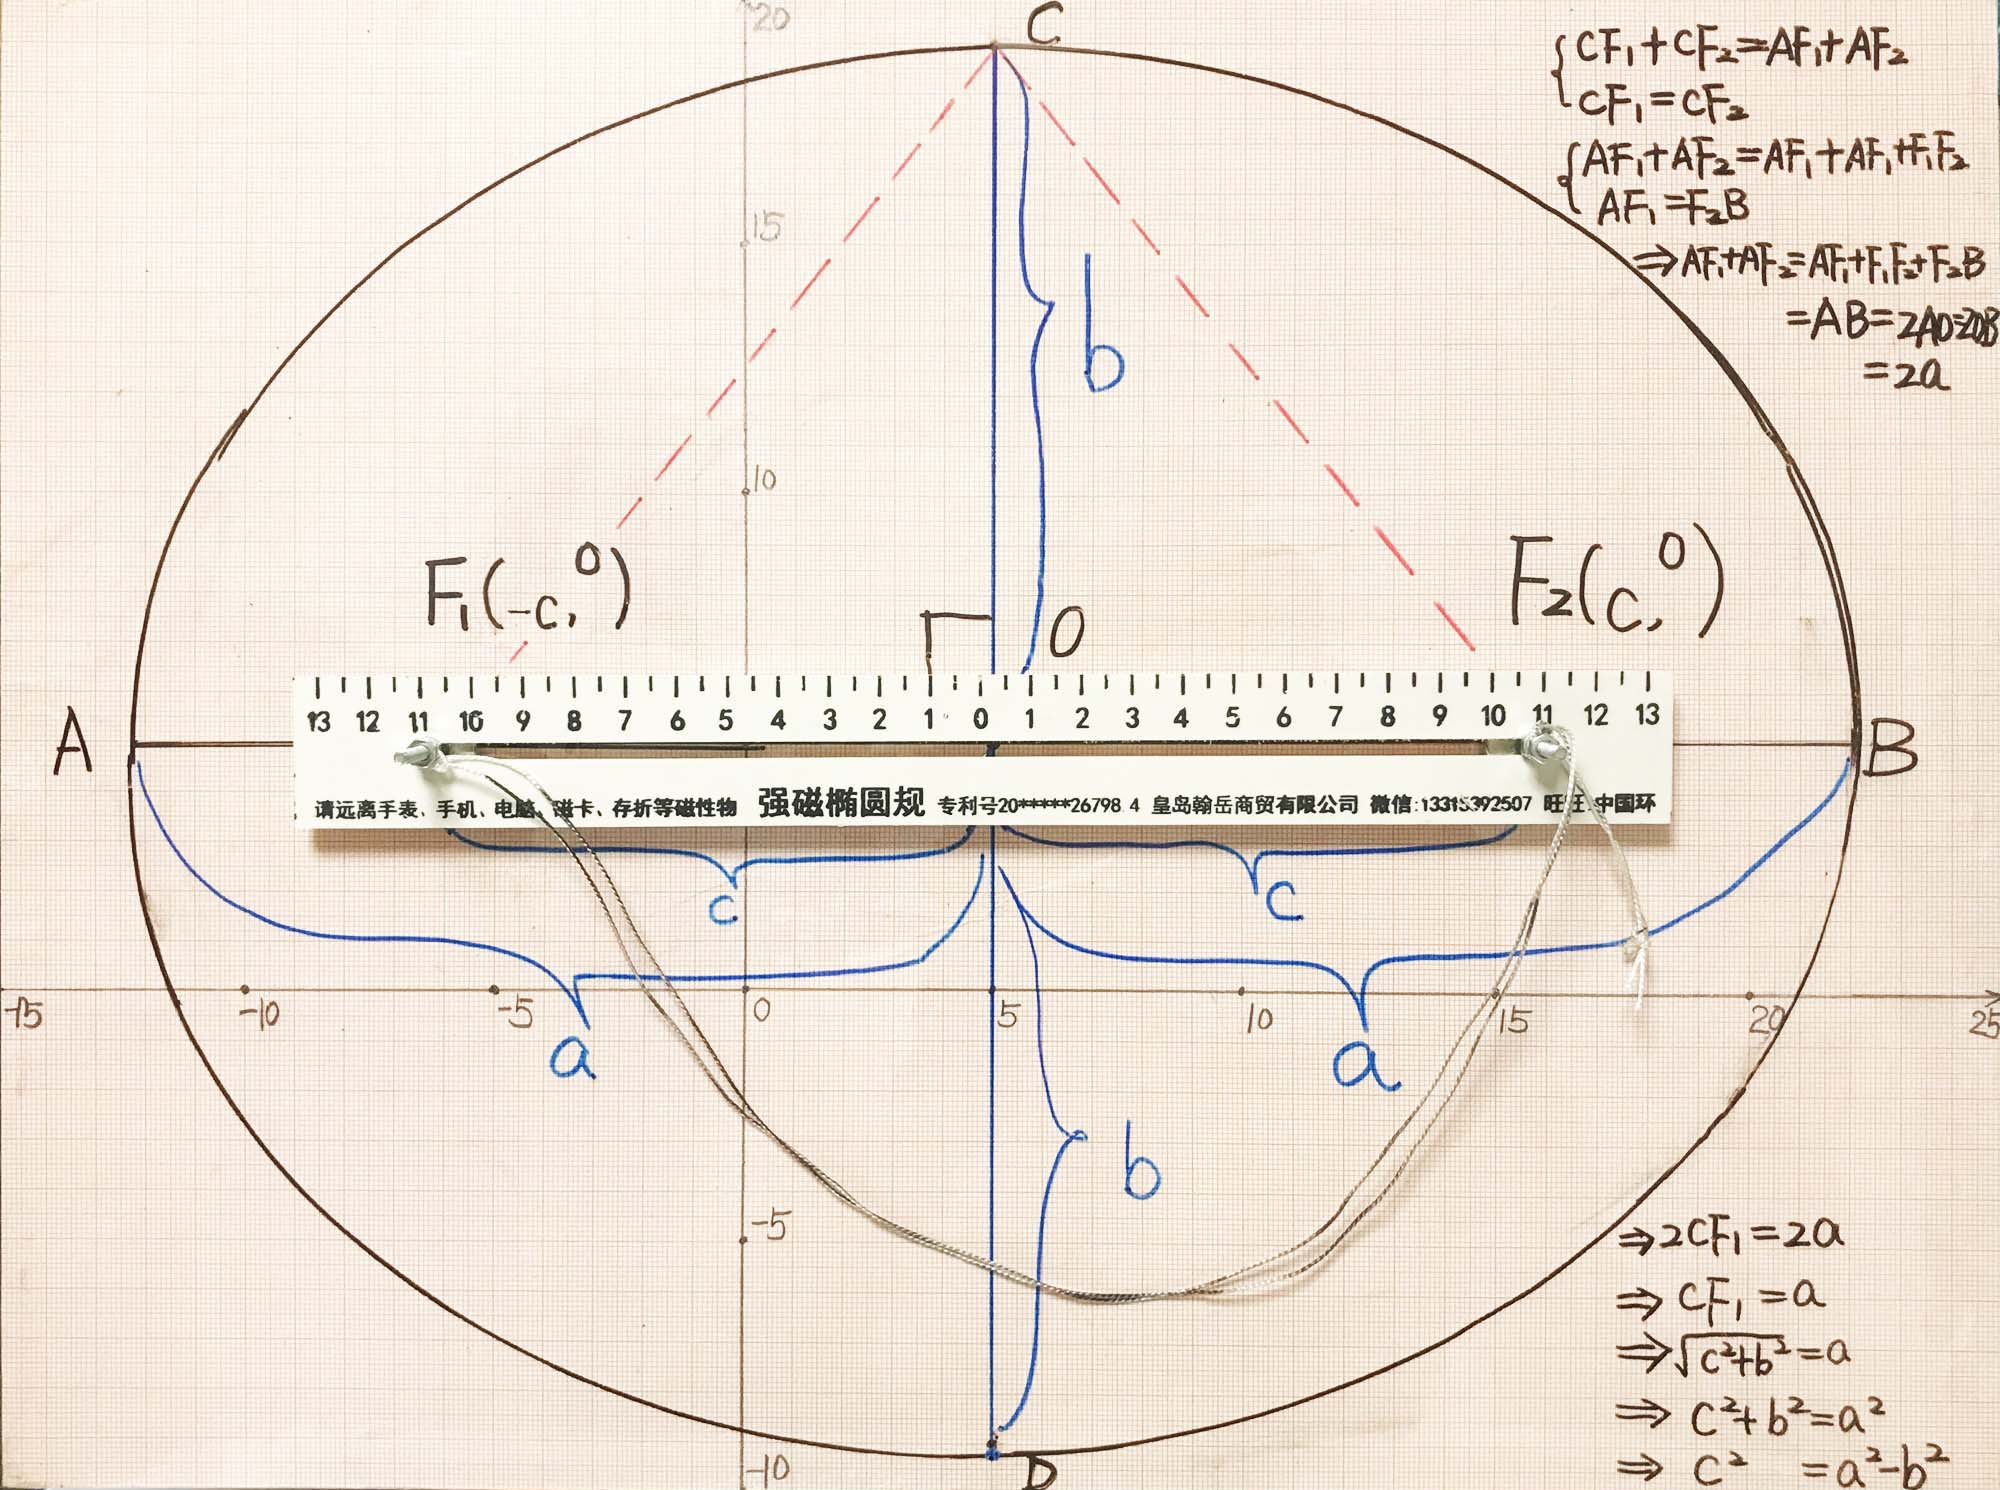 20
C
{CF₁+CF₂=AF₁+AF₂
CF₁=CF₂
{AF₁+AF₂=AF₁+AF₁+F₁F₂
AF₁=F₂B
⇒AF₁+AF₂=AF₁+F₁F₂+F₂B
=AB=2AO=2OB
=2a
15
b
10
F₁(-c, 0)
O
F₂(c, 0)
13 12 11 10 9 8 7 6 5 4 3 2 1 0 1 2 3 4 5 6 7 8 9 10 11 12 13
A
B
请远离手表、手机、电脑、磁卡、存折等磁性物 强磁椭圆规 专利号20*****26798.4 皇岛翰岳商贸有限公司 微信:13315392507 旺旺:中国环
c
c
-15 -10 -5 0 5 10 15 20 25
a
a
b
-5
⇒2CF₁=2a
⇒CF₁=a
⇒√c²+b²=a
⇒c²+b²=a²
⇒c²=a²-b²
-10
D